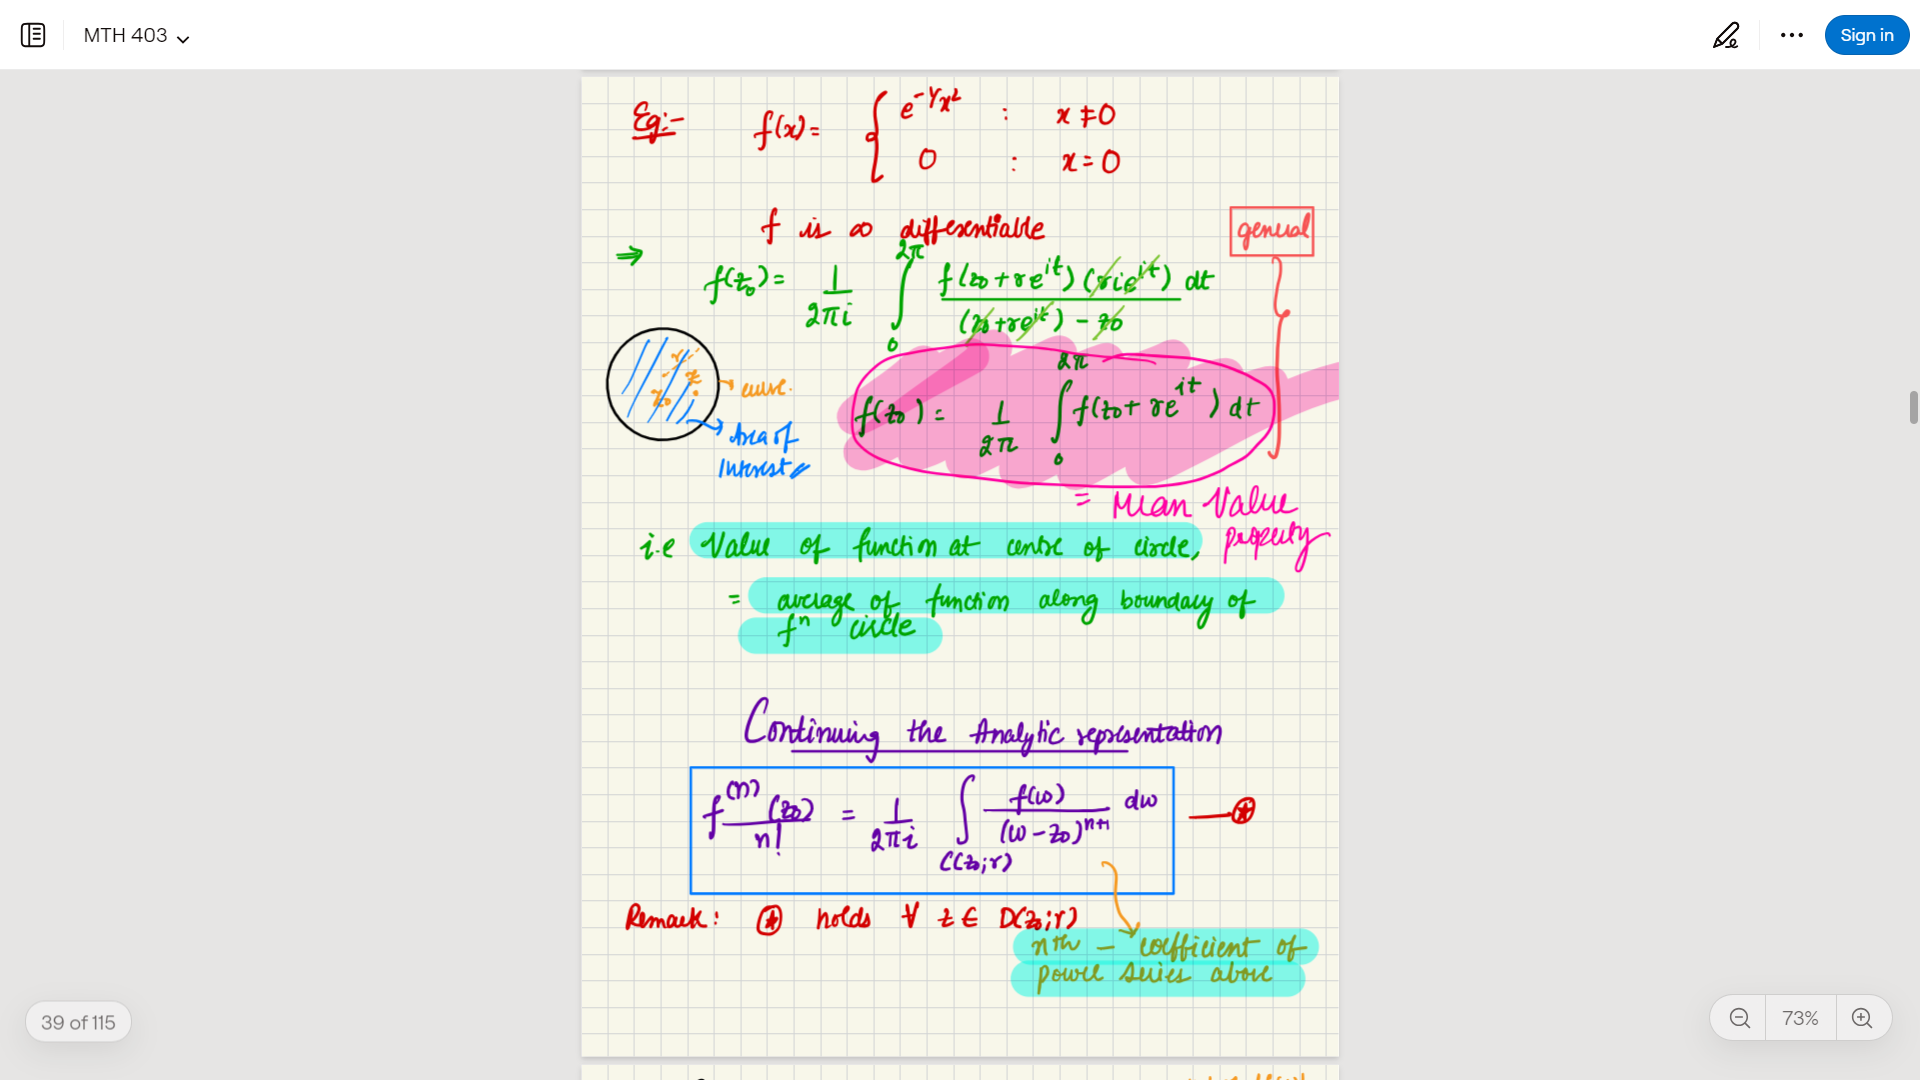 MTH 403
Sign in
Eg:- f(x) = { e^{-1/x²} : x ≠ 0
0 : x = 0
f is ∞ differentiable
general
⇒ f(z₀) = 1/2πi ∫₀^{2π} f(z₀ + re^{it}) (rie^{it}) dt / (z₀ + re^{it}) - z₀
r
z
z₀
→ curve.
Area of
Interest
f(z₀) = 1/2π ∫₀^{2π} f(z₀ + re^{it}) dt
= Mean Value
property
i.e Value of function at centre of circle,
= average of function along boundary of
fⁿ circle
Continuing the Analytic representation
f^{(n)}(z₀)/n! = 1/2πi ∫_{C(z₀;r)} f(w)/(w - z₀)^{n+1} dw —⊛
Remark: ⊛ holds ∀ z ∈ D(z₀;r)
nth - coefficient of
power series above
39 of 115
73%